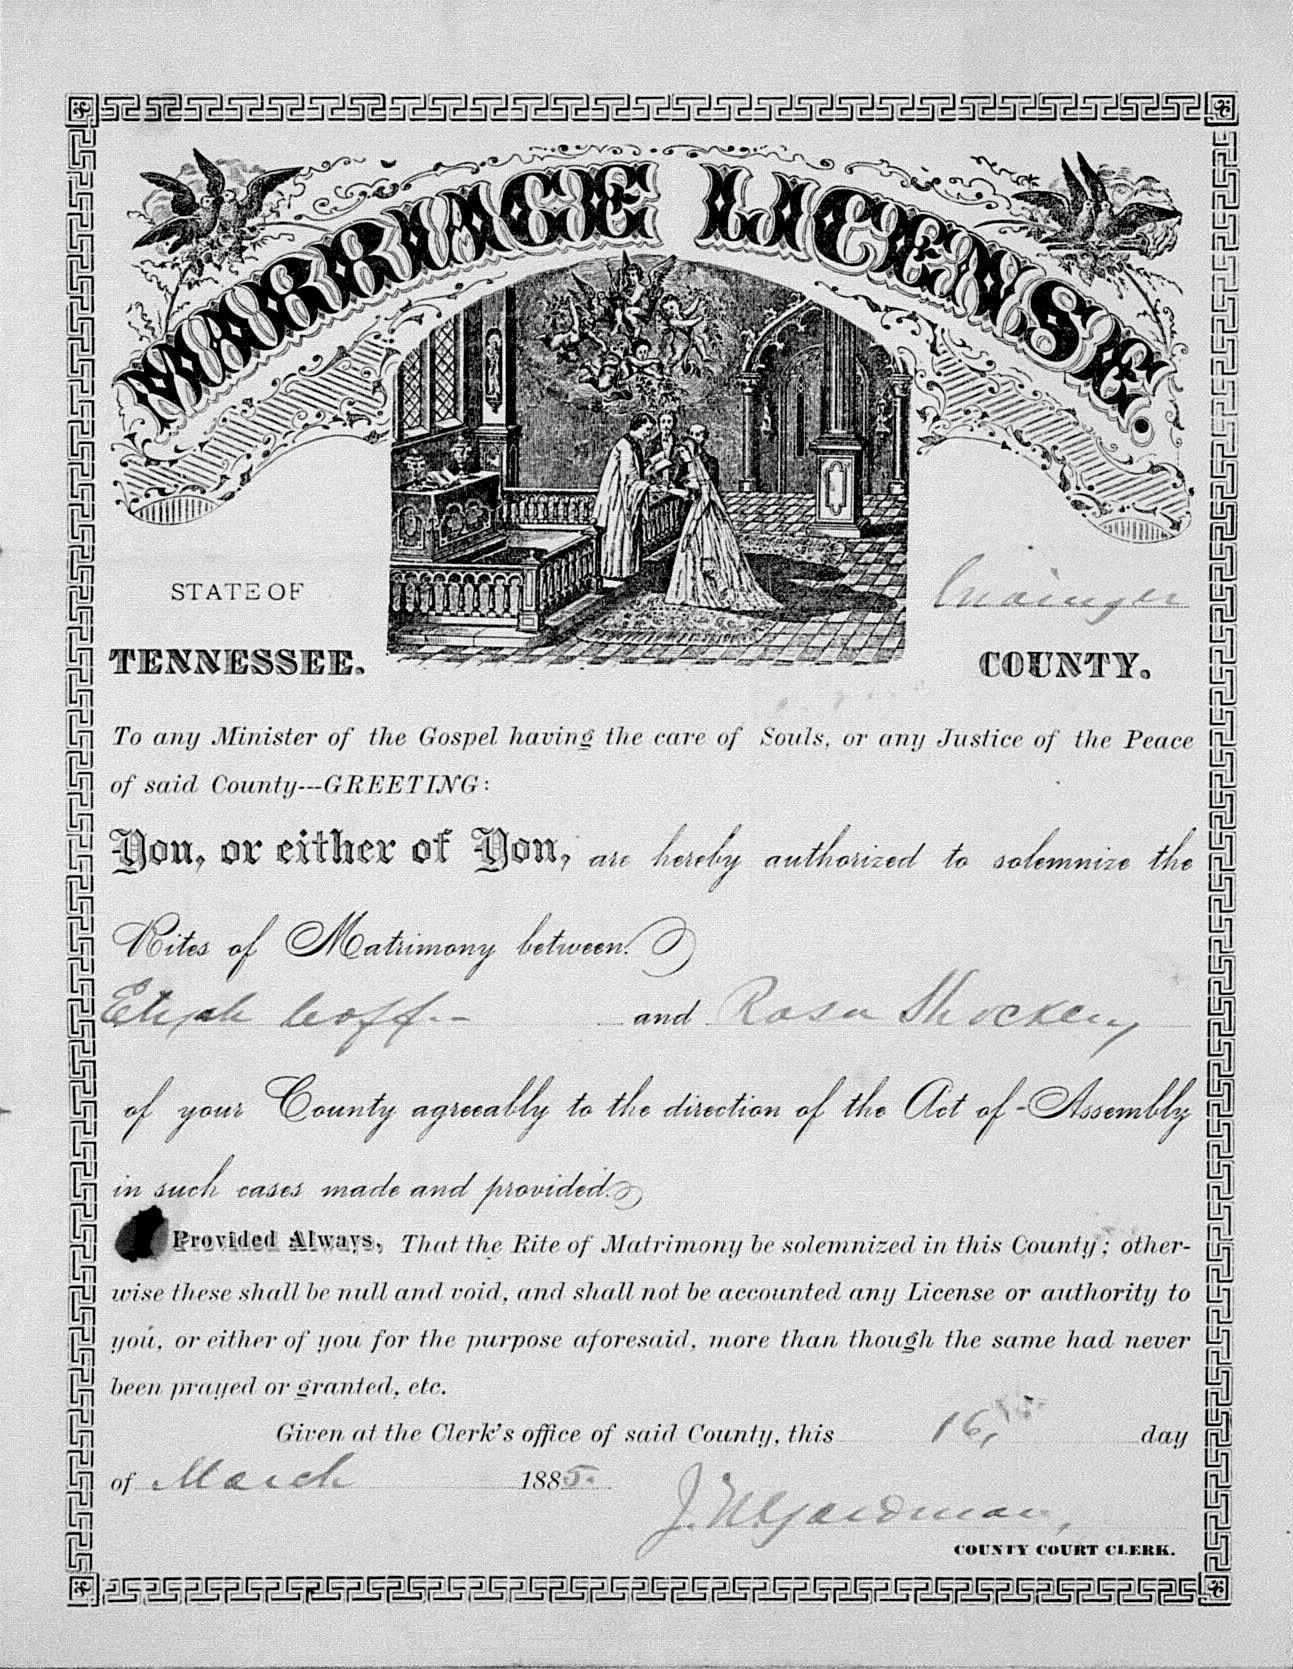 MARRIAGE LICENSE
STATE OF
Grainger
TENNESSEE.
COUNTY.
To any Minister of the Gospel having the care of Souls, or any Justice of the Peace
of said County---GREETING:
You, or either of You, are hereby authorized to solemnize the
Rites of Matrimony between
Elijah Coff and Rosa Shockley
of your County agreeably to the direction of the Act of Assembly
in such cases made and provided.
Provided Always, That the Rite of Matrimony be solemnized in this County; other-
wise these shall be null and void, and shall not be accounted any License or authority to
you, or either of you for the purpose aforesaid, more than though the same had never
been prayed or granted, etc.
Given at the Clerk's office of said County, this 16, day
of March 1885.
COUNTY COURT CLERK.